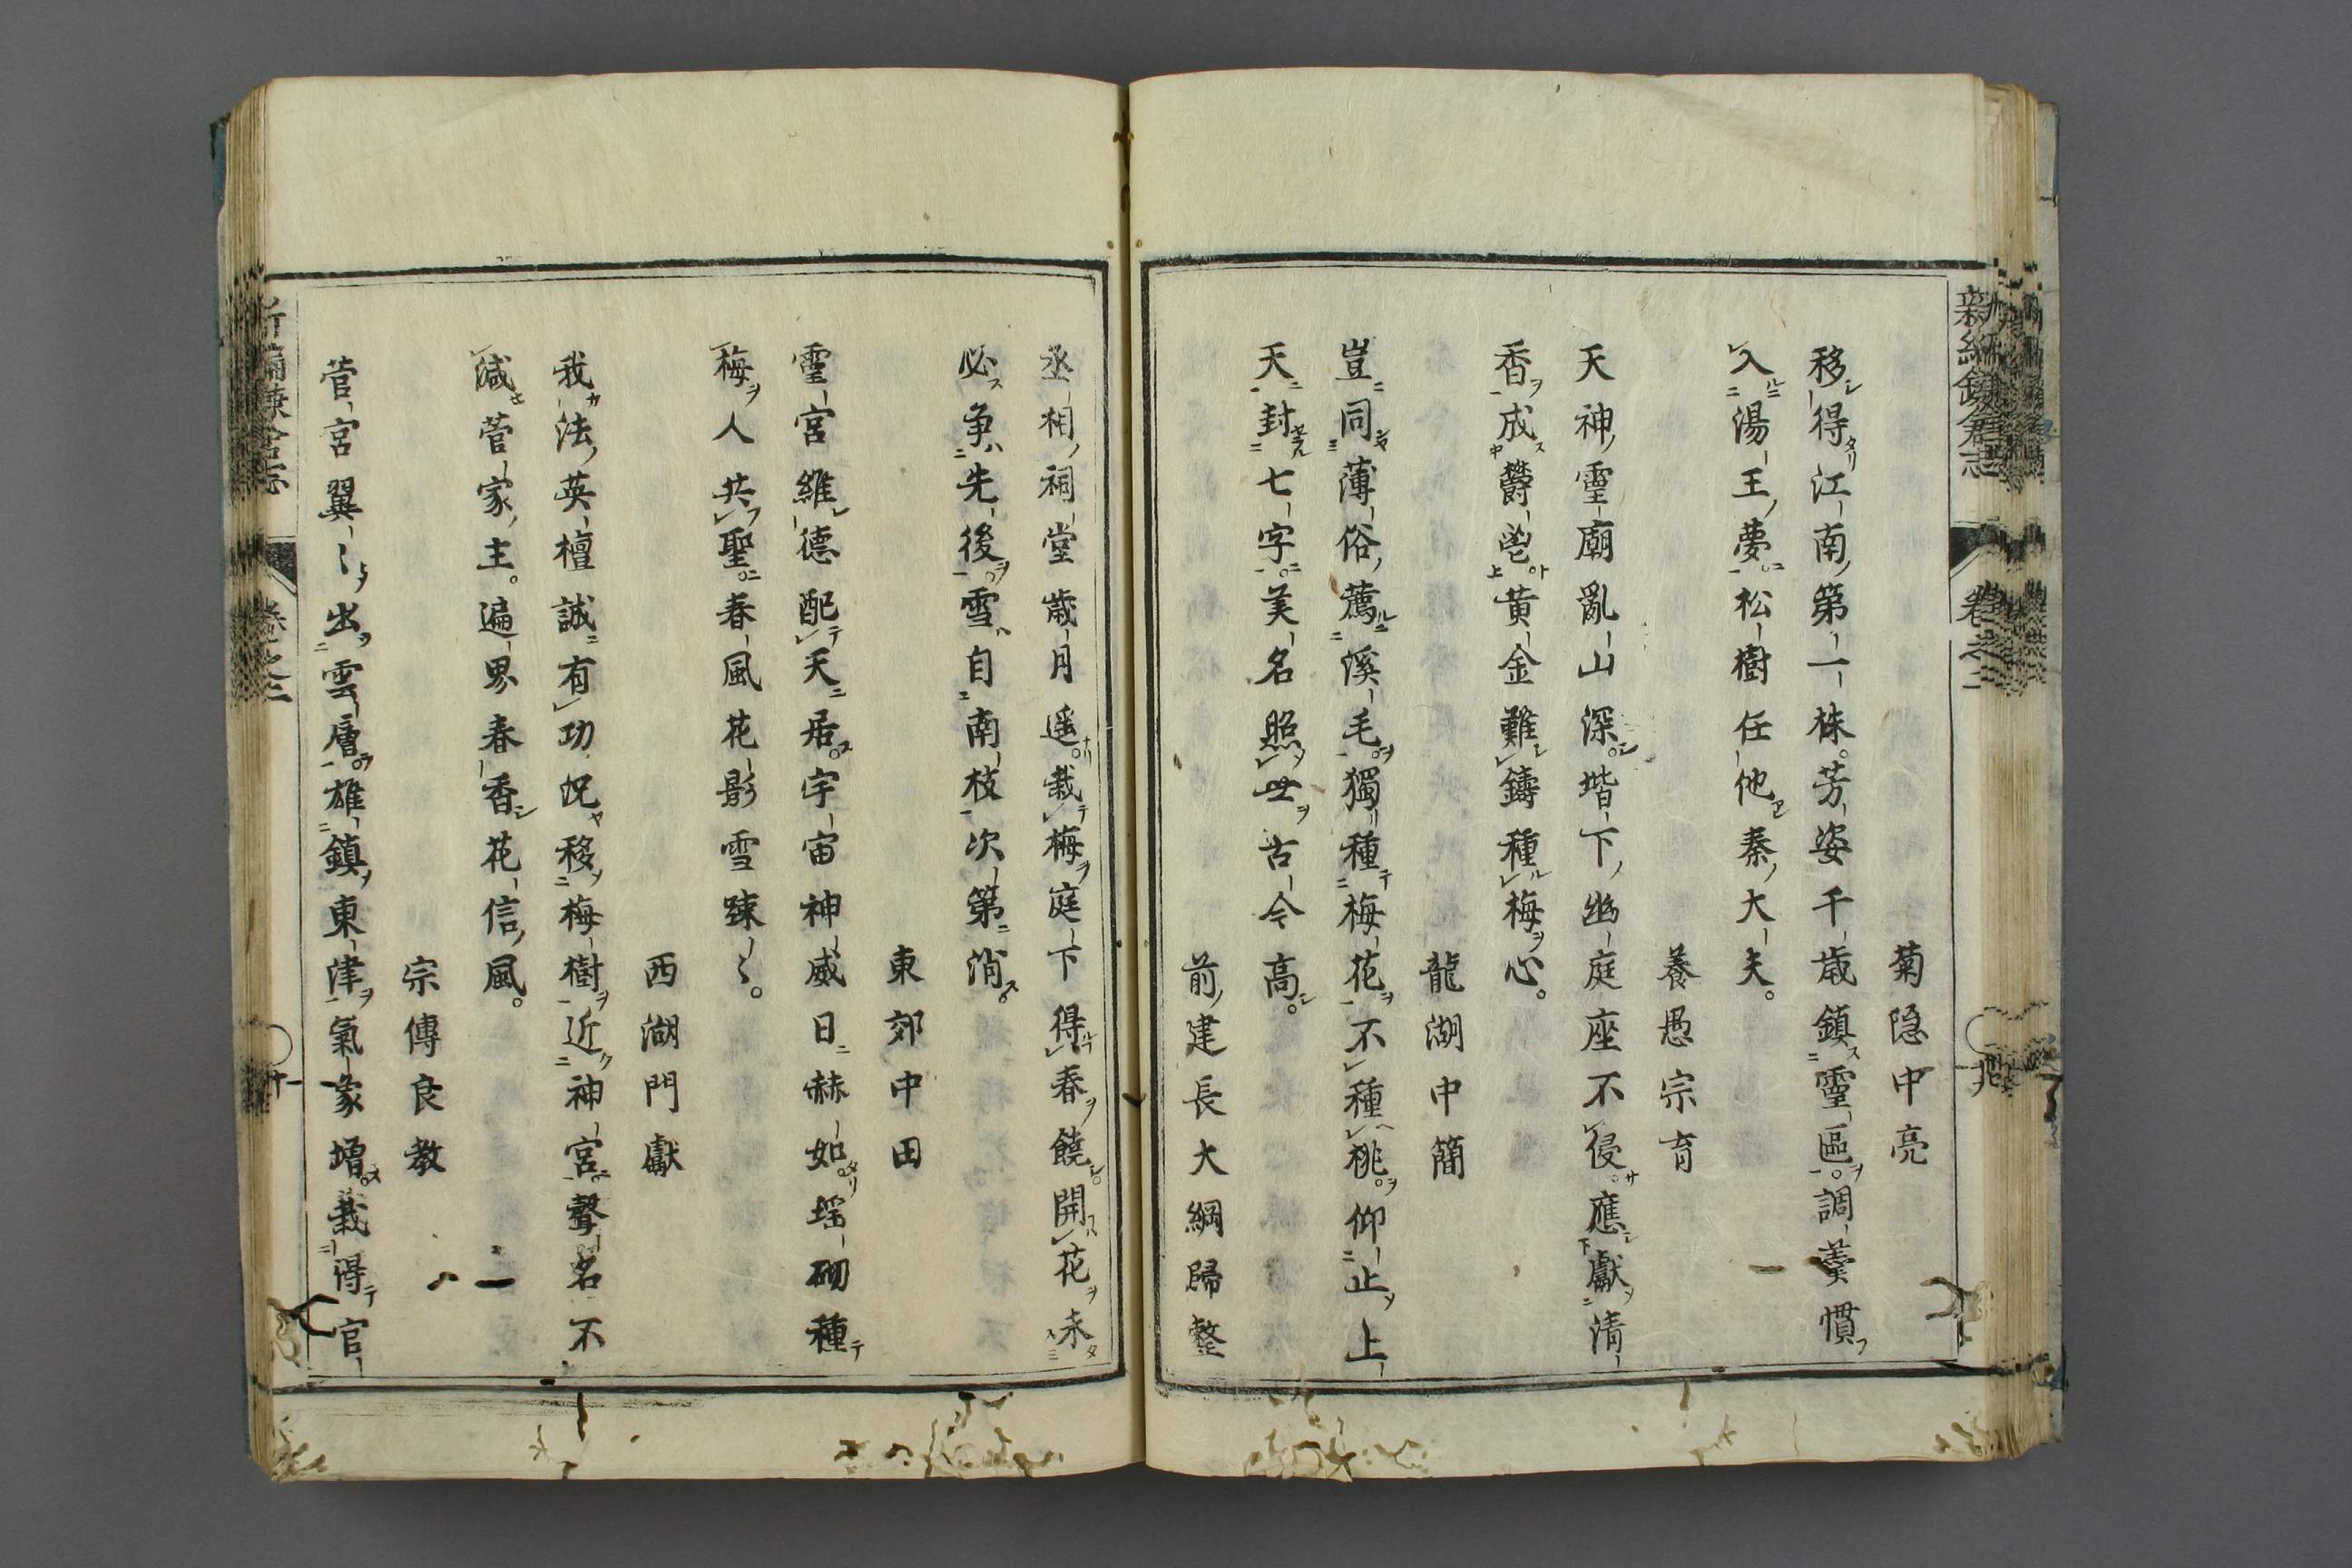 新編鎌倉志
卷之二
菊隐中亮
移得江南第一株。芳姿千歲鎮靈區。調羹慣
入湯王夢。松樹任他秦大夫。
養愚宗育
天神靈廟亂山深。堦下幽庭座不侵。應獻清
香成欝鬯。黃金難鑄種梅心。
龍湖中簡
豈同薄俗薦溪毛。獨種梅花不種桃。仰止上
天封七字。美名照世古今高。
前建長大綱歸整
丞相祠堂歲月遥。栽梅庭下得春饒。開花未
必争先後。雪自南枝次第消。
東郊中田
靈宮維德配天居。宇宙神威日赫如。瑶砌種
梅人共聖。春風花影雪踈〻。
西湖門獻
我法英檀誠有功況移梅樹近神宮。聲名不
減菅家主。遍界春香花信風。
宗傳良教
菅宮翼〻出雲層。雄鎮東津氣象增。栽得官